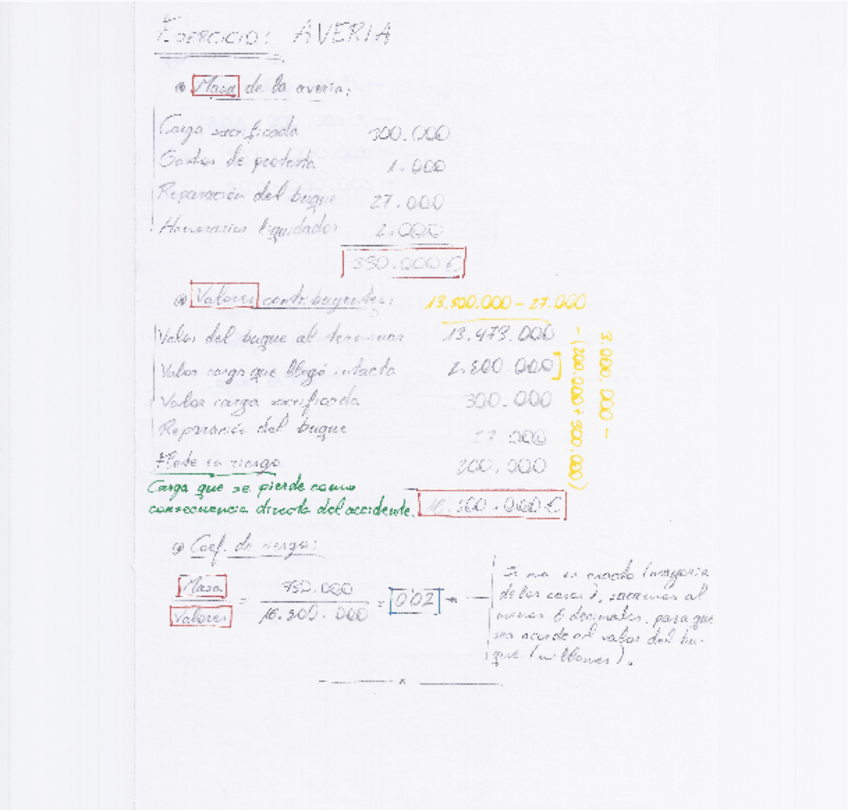 EJERCICIO: AVERIA
Masa de la averia:
Carga sacrificada 300.000
Gastos de protesta 1.000
Reparación del buque 27.000
Honorarios liquidador 2.000
330.000 €
Valores contribuyentes: 13.500.000 - 27.000
Valor del buque al terminar 13.473.000
Valor carga que llegó intacta 2.500.000
Valor carga sacrificada 300.000
Reparación del buque 27.000
Flete en riesgo 200.000
3.000.000 -
- (200.000 + 300.000)
Carga que se pierde como
consecuencia directa del accidente.
16.500.000 €
Coef. de riesgo:
Masa
Valores
= 330.000
16.500.000
= 0'02
Si no es exacto (mayoría
de los casos), sacamos al
menos 6 decimales, para que
sea acorde al valor del bu-
que (millones).